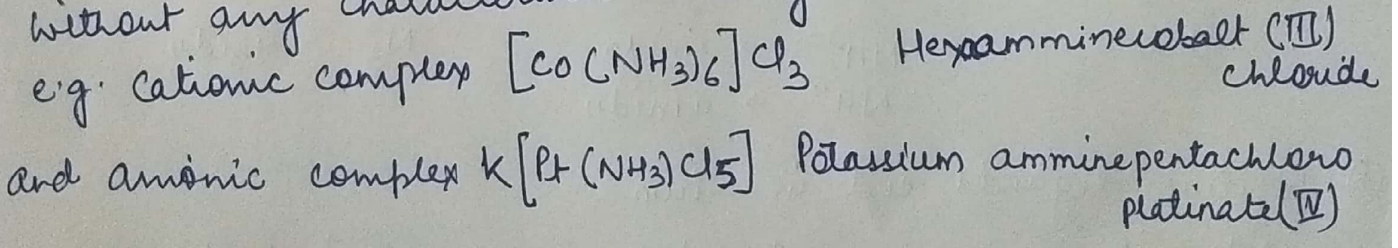 without any
e.g. Cationic complex [Co(NH3)6]Cl3 Hexaamminecobalt (III)
chloride
and anionic complex K[Pt(NH3)Cl5] Potassium amminepentachloro
platinate(IV)